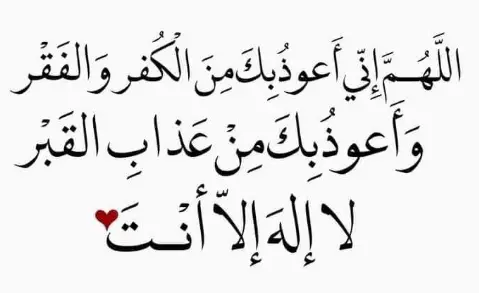 اللَّهُـمَّ إِنِّي أَعوذُ بِكَ مِنَ الْكُفر وَالفَقْر
وَأَعوذُ بِكَ مِنْ عَذابِ القَبْر
لا إلهَ إلاّ أنْـتَ